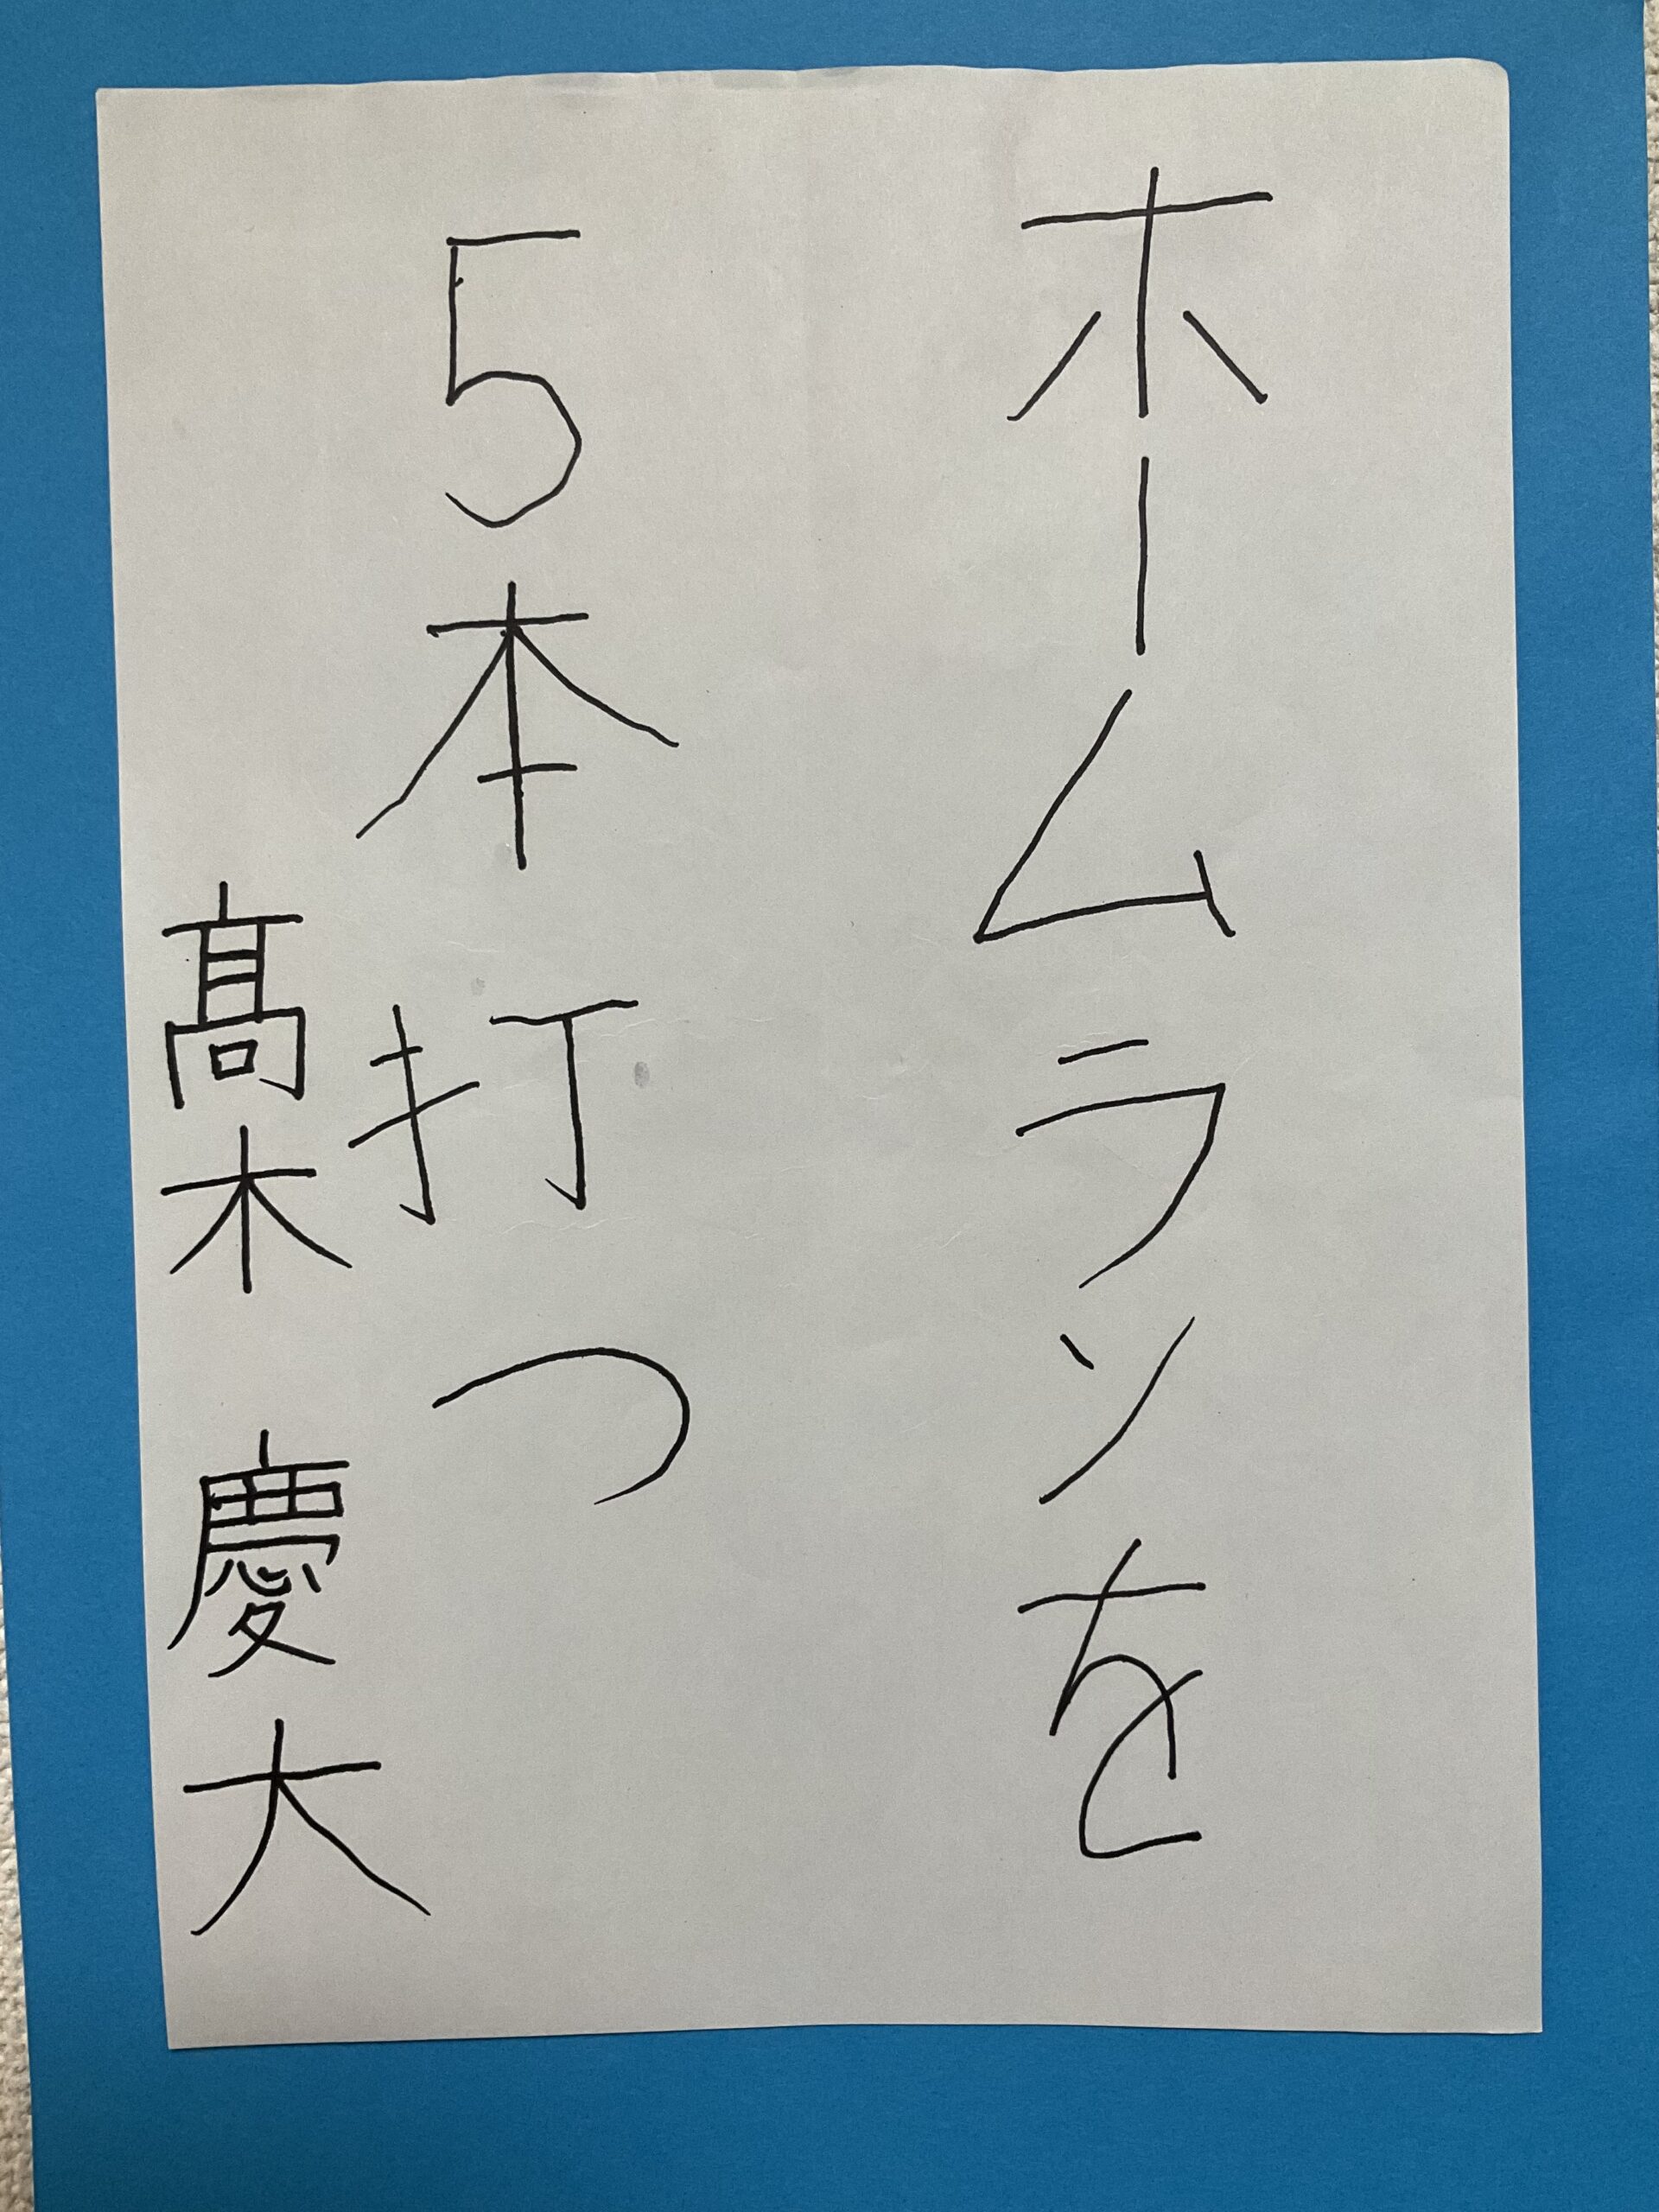 ホームランを
5本打つ
髙木 慶大